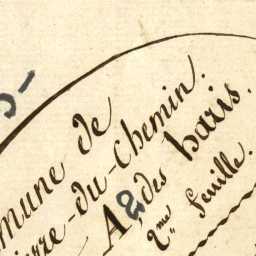 mune de
ierre-du-Chemin.
A2 des haris.
2me feuille.